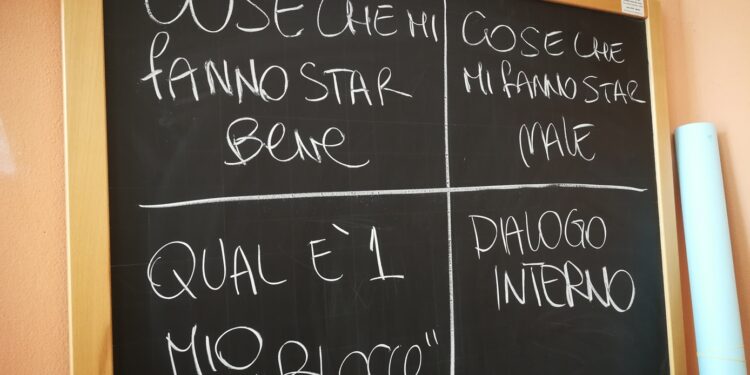 COSE CHE MI
FANNO STAR
BENE
COSE CHE
MI FANNO STAR
MALE
QUAL E` 1
MIO "BLOCCO"
DIALOGO
INTERNO